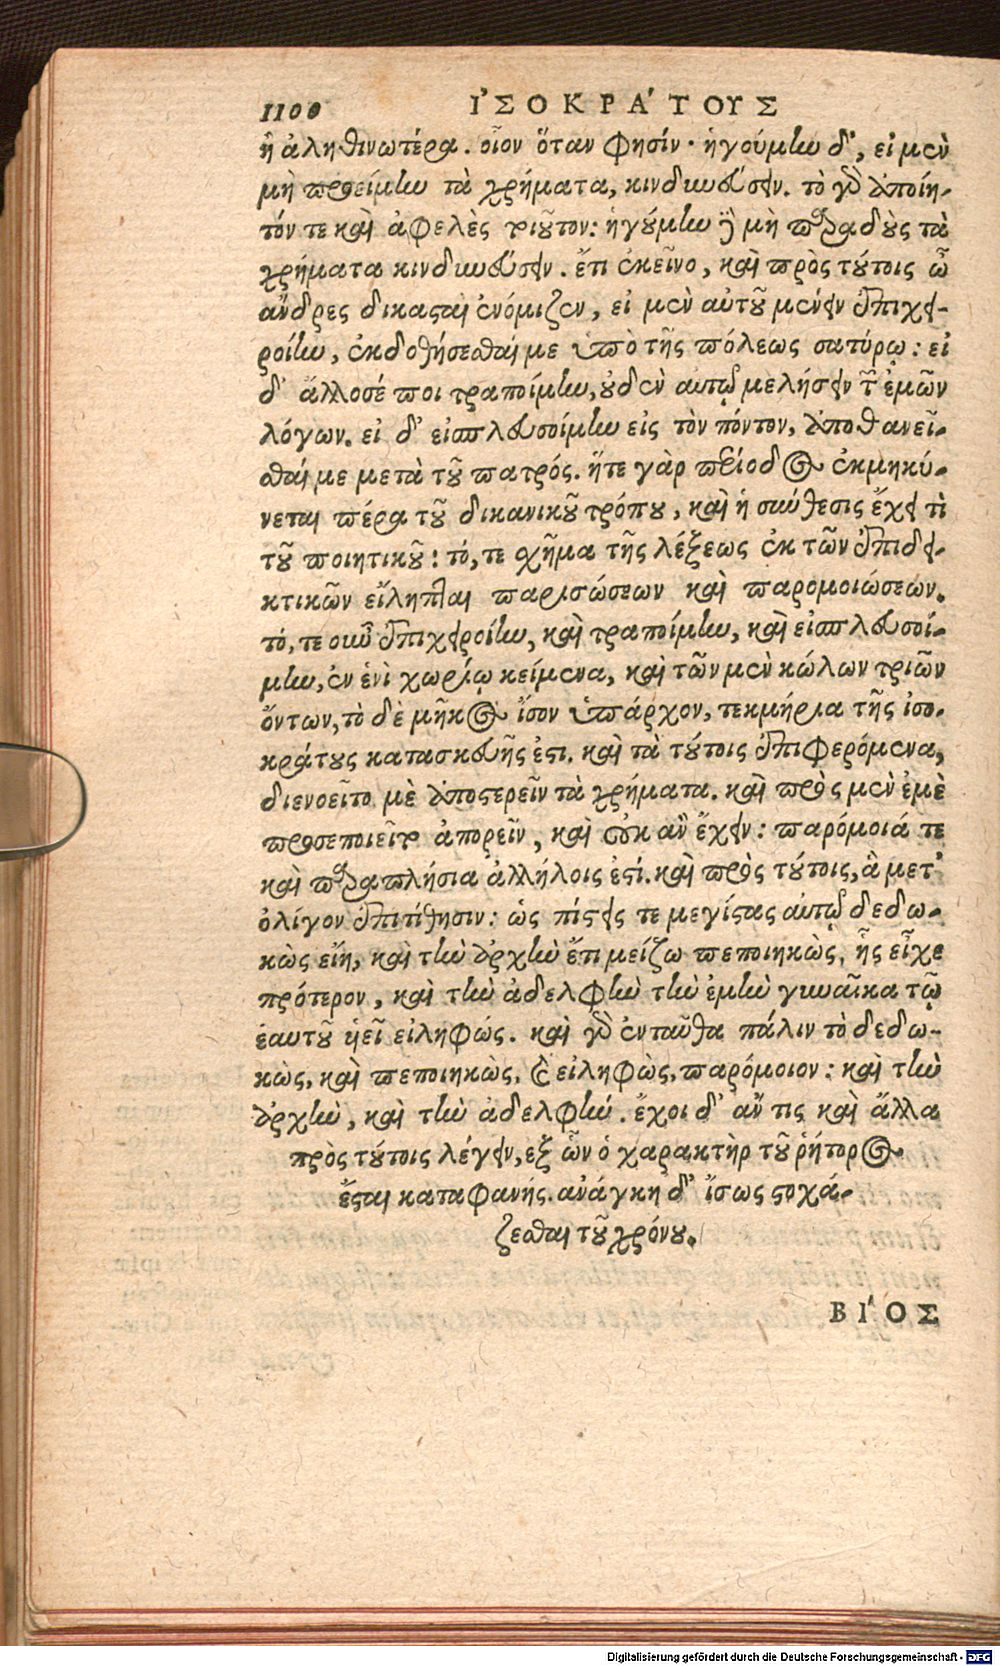 1100 ἸΣΟΚΡΆΤΟΥΣ
ἢ ἀληθινωτέρα. οἷον ὅταν φησίν· ἡγούμην δ', εἰ μὲν
μὴ προείμην τὰ χρήματα, κινδυνεύσειν. τὸ γὰρ ἀποίη-
τόν τε καὶ ἀφελὲς τοιοῦτον: ἡγούμην δὲ μὴ παραδοὺς τὰ
χρήματα κινδυνεύσειν. ἔτι ἐκεῖνο, καὶ πρὸς τούτοις ὦ
ἄνδρες δικασταὶ ἐνόμιζεν, εἰ μὲν αὐτοῦ μένειν ἐπιχει-
ροίην, ἐκδοθήσεσθαί με ὑπὸ τῆς πόλεως σατύρῳ: εἰ
δ' ἄλλοσέ ποι τραποίμην, οὐδὲν αὐτῷ μελήσειν τῶν ἐμῶν
λόγων. εἰ δ' εἰσπλευσοίμην εἰς τὸν πόντον, ἀποθανεῖ-
σθαί με μετὰ τοῦ πατρός. ἥτε γὰρ περίοδος ἐκμηκύ-
νεται πέρα τοῦ δικανικοῦ τρόπου, καὶ ἡ σύνθεσις ἔχει τὶ
τοῦ ποιητικοῦ: τό, τε σχῆμα τῆς λέξεως ἐκ τῶν ἐπιδει-
κτικῶν εἴληπται παρισώσεων καὶ παρομοιώσεων.
τό, τε οὖν ἐπιχειροίην, καὶ τραποίμην, καὶ εἰσπλευσοί-
μην, ἐν ἑνὶ χωρίῳ κείμενα, καὶ τῶν μὲν κώλων τριῶν
ὄντων, τὸ δὲ μῆκος ἴσον ὑπάρχον, τεκμήρια τῆς ἰσο-
κράτους κατασκευῆς ἐστι. καὶ τὰ τούτοις ἐπιφερόμενα,
διενοεῖτο μὲ ἀποστερεῖν τὰ χρήματα. καὶ πρὸς μὲν ἐμὲ
προσεποιεῖτο ἀπορεῖν, καὶ οὐκ ἂν ἔχειν: παρόμοιά τε
καὶ παραπλήσια ἀλλήλοις ἐστί. καὶ πρὸς τούτοις, ἃ μετ'
ὀλίγον ἐπιτίθησιν: ὡς πίστεις τε μεγίστας αὐτῷ δεδω-
κὼς εἴη, καὶ τὴν ἀρχὴν ἔτι μείζω πεποιηκὼς, ἧς εἶχε
πρότερον, καὶ τὴν ἀδελφὴν τὴν ἐμὴν γυναῖκα τῷ
ἑαυτοῦ ὑεῖ εἰληφώς. καὶ γὰρ ἐνταῦθα πάλιν τὸ δεδω-
κὼς, καὶ πεποιηκὼς, καὶ εἰληφὼς, παρόμοιον: καὶ τὴν
ἀρχὴν, καὶ τὴν ἀδελφήν. ἔχοι δ' ἄν τις καὶ ἄλλα
πρὸς τούτοις λέγειν, ἐξ ὧν ὁ χαρακτὴρ τοῦ ῥήτορος
ἔσται καταφανής. ἀνάγκη δ' ἴσως στοχά-
ζεσθαι τοῦ χρόνου.
ΒΊΟΣ
Digitalisierung gefördert durch die Deutsche Forschungsgemeinschaft - DFG